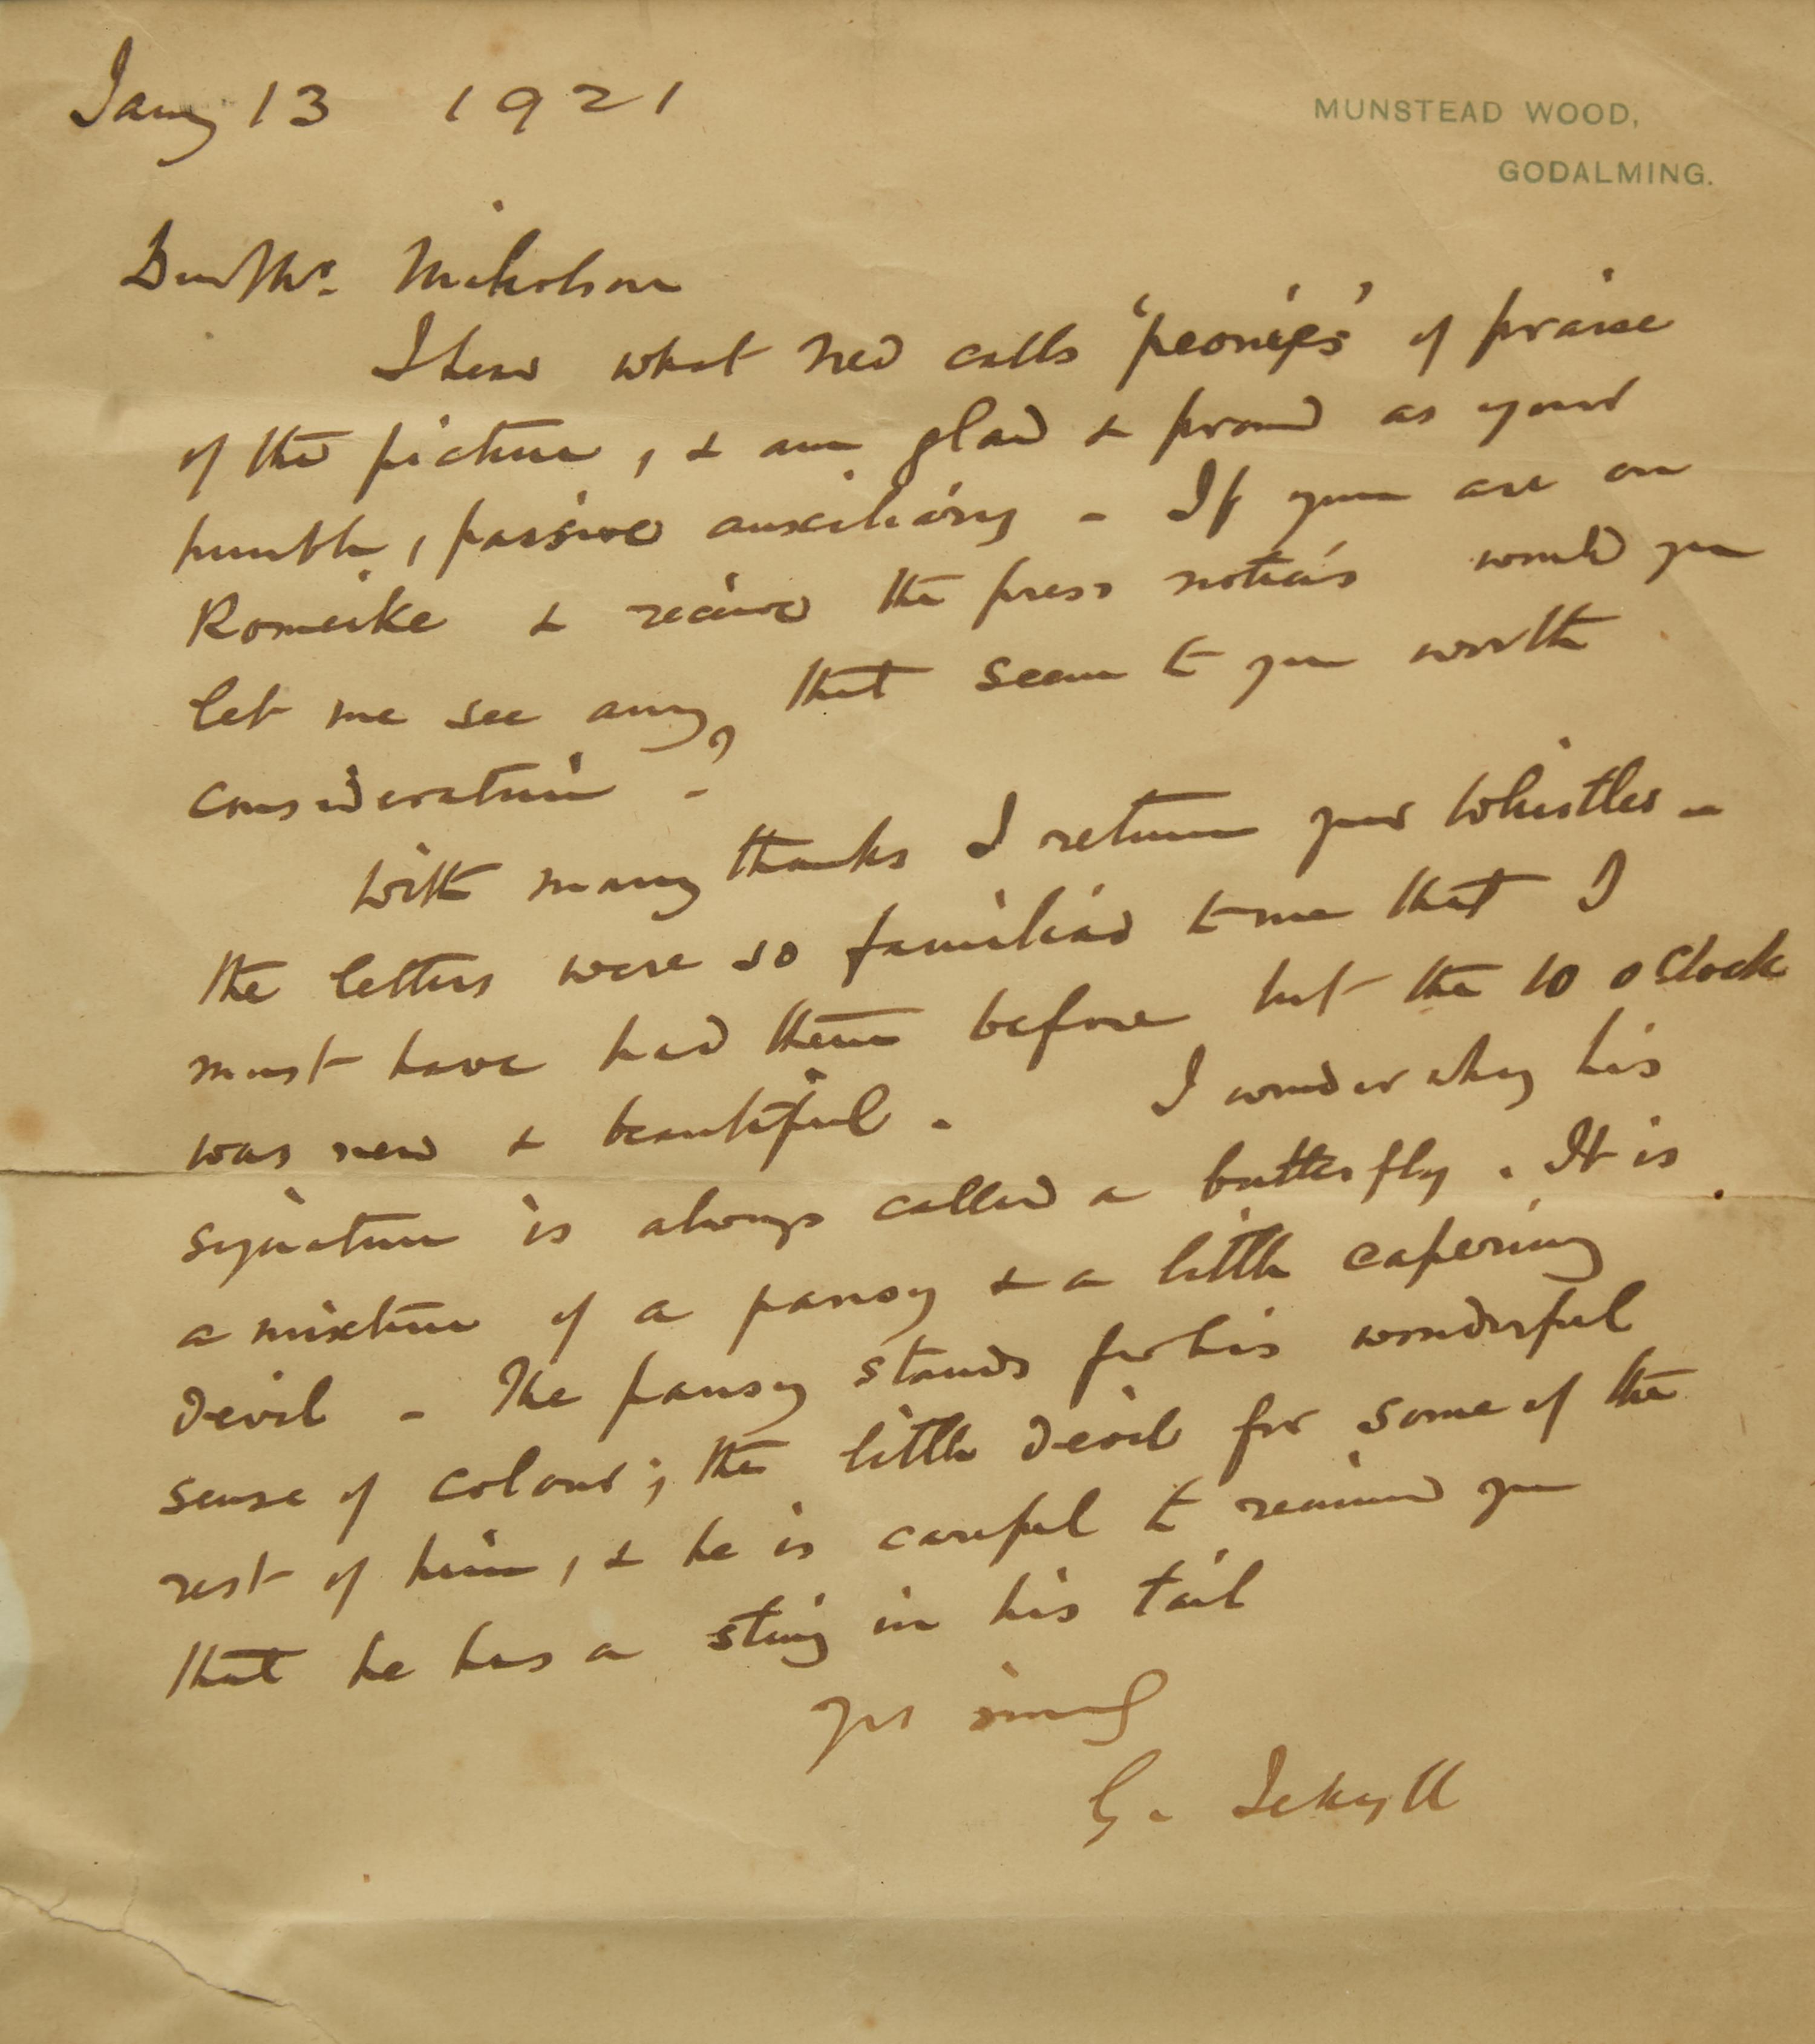 Jany 13 1921
MUNSTEAD WOOD,
GODALMING.
Dear Mr. Nicholson
I hear what Ned calls 'peonies' of praise
of the picture, & am glad & proud as your
humble, passive auxiliary - If you are on
Romeike & receive the press notices would you
let me see any, that seem to you worth
consideration?
With many thanks I return your Whistler -
the letters were so familiar to me that I
must have had them before but the 10 o Clock
was new & beautiful. I wonder why his
signature is always called a butterfly. It is
a mixture of a pansy & a little capering
devil - The pansy stands for his wonderful
sense of colour; the little devil for some of the
rest of him, & he is careful to remind you
that he has a sting in his tail
yrs sincerely
G. Jekyll